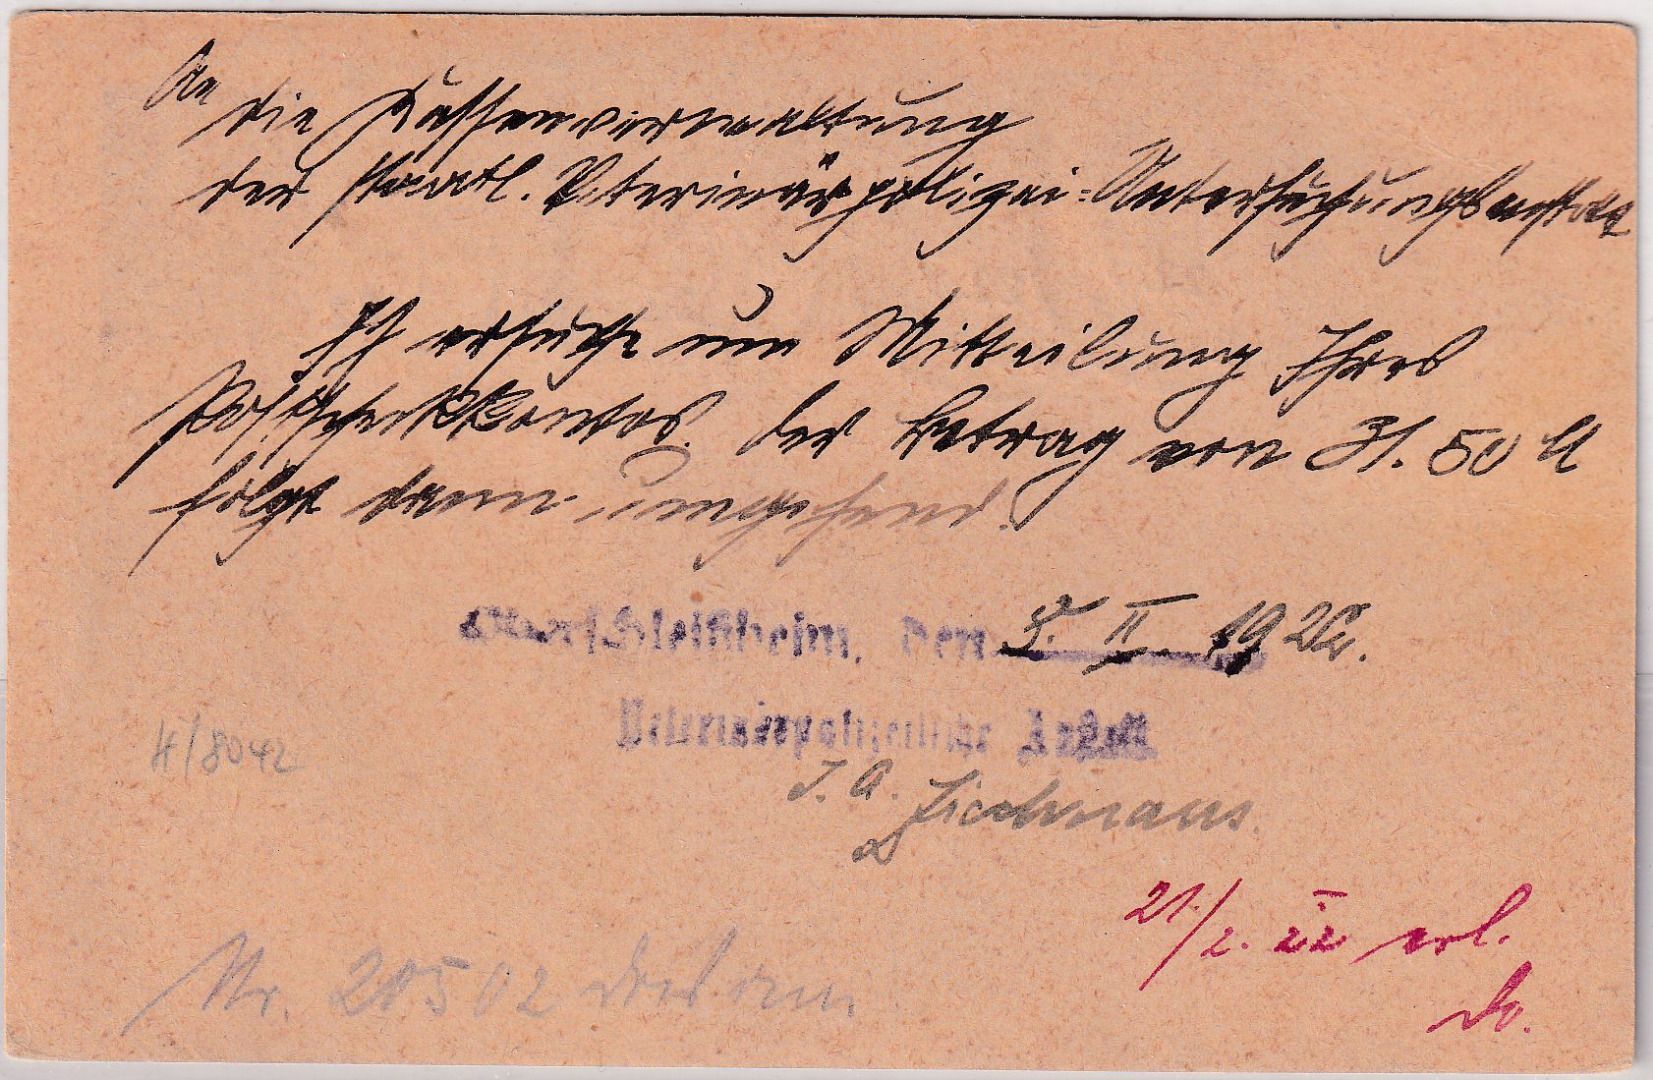 An
die Kassenverwaltung
der staatl. Veterinärpolizei-Untersuchungsanstalt
Ich ersuche um Mitteilung Ihres
Postscheckkontos. Der Betrag von 31.50 M
folgt dann umgehend.
Oberschleißheim, den 9. II. 1922.
Veterinärpolizeiliche Anstalt
I. A.
H/8042
21./2. 22 erl.
Nr. 20502 Dresden.